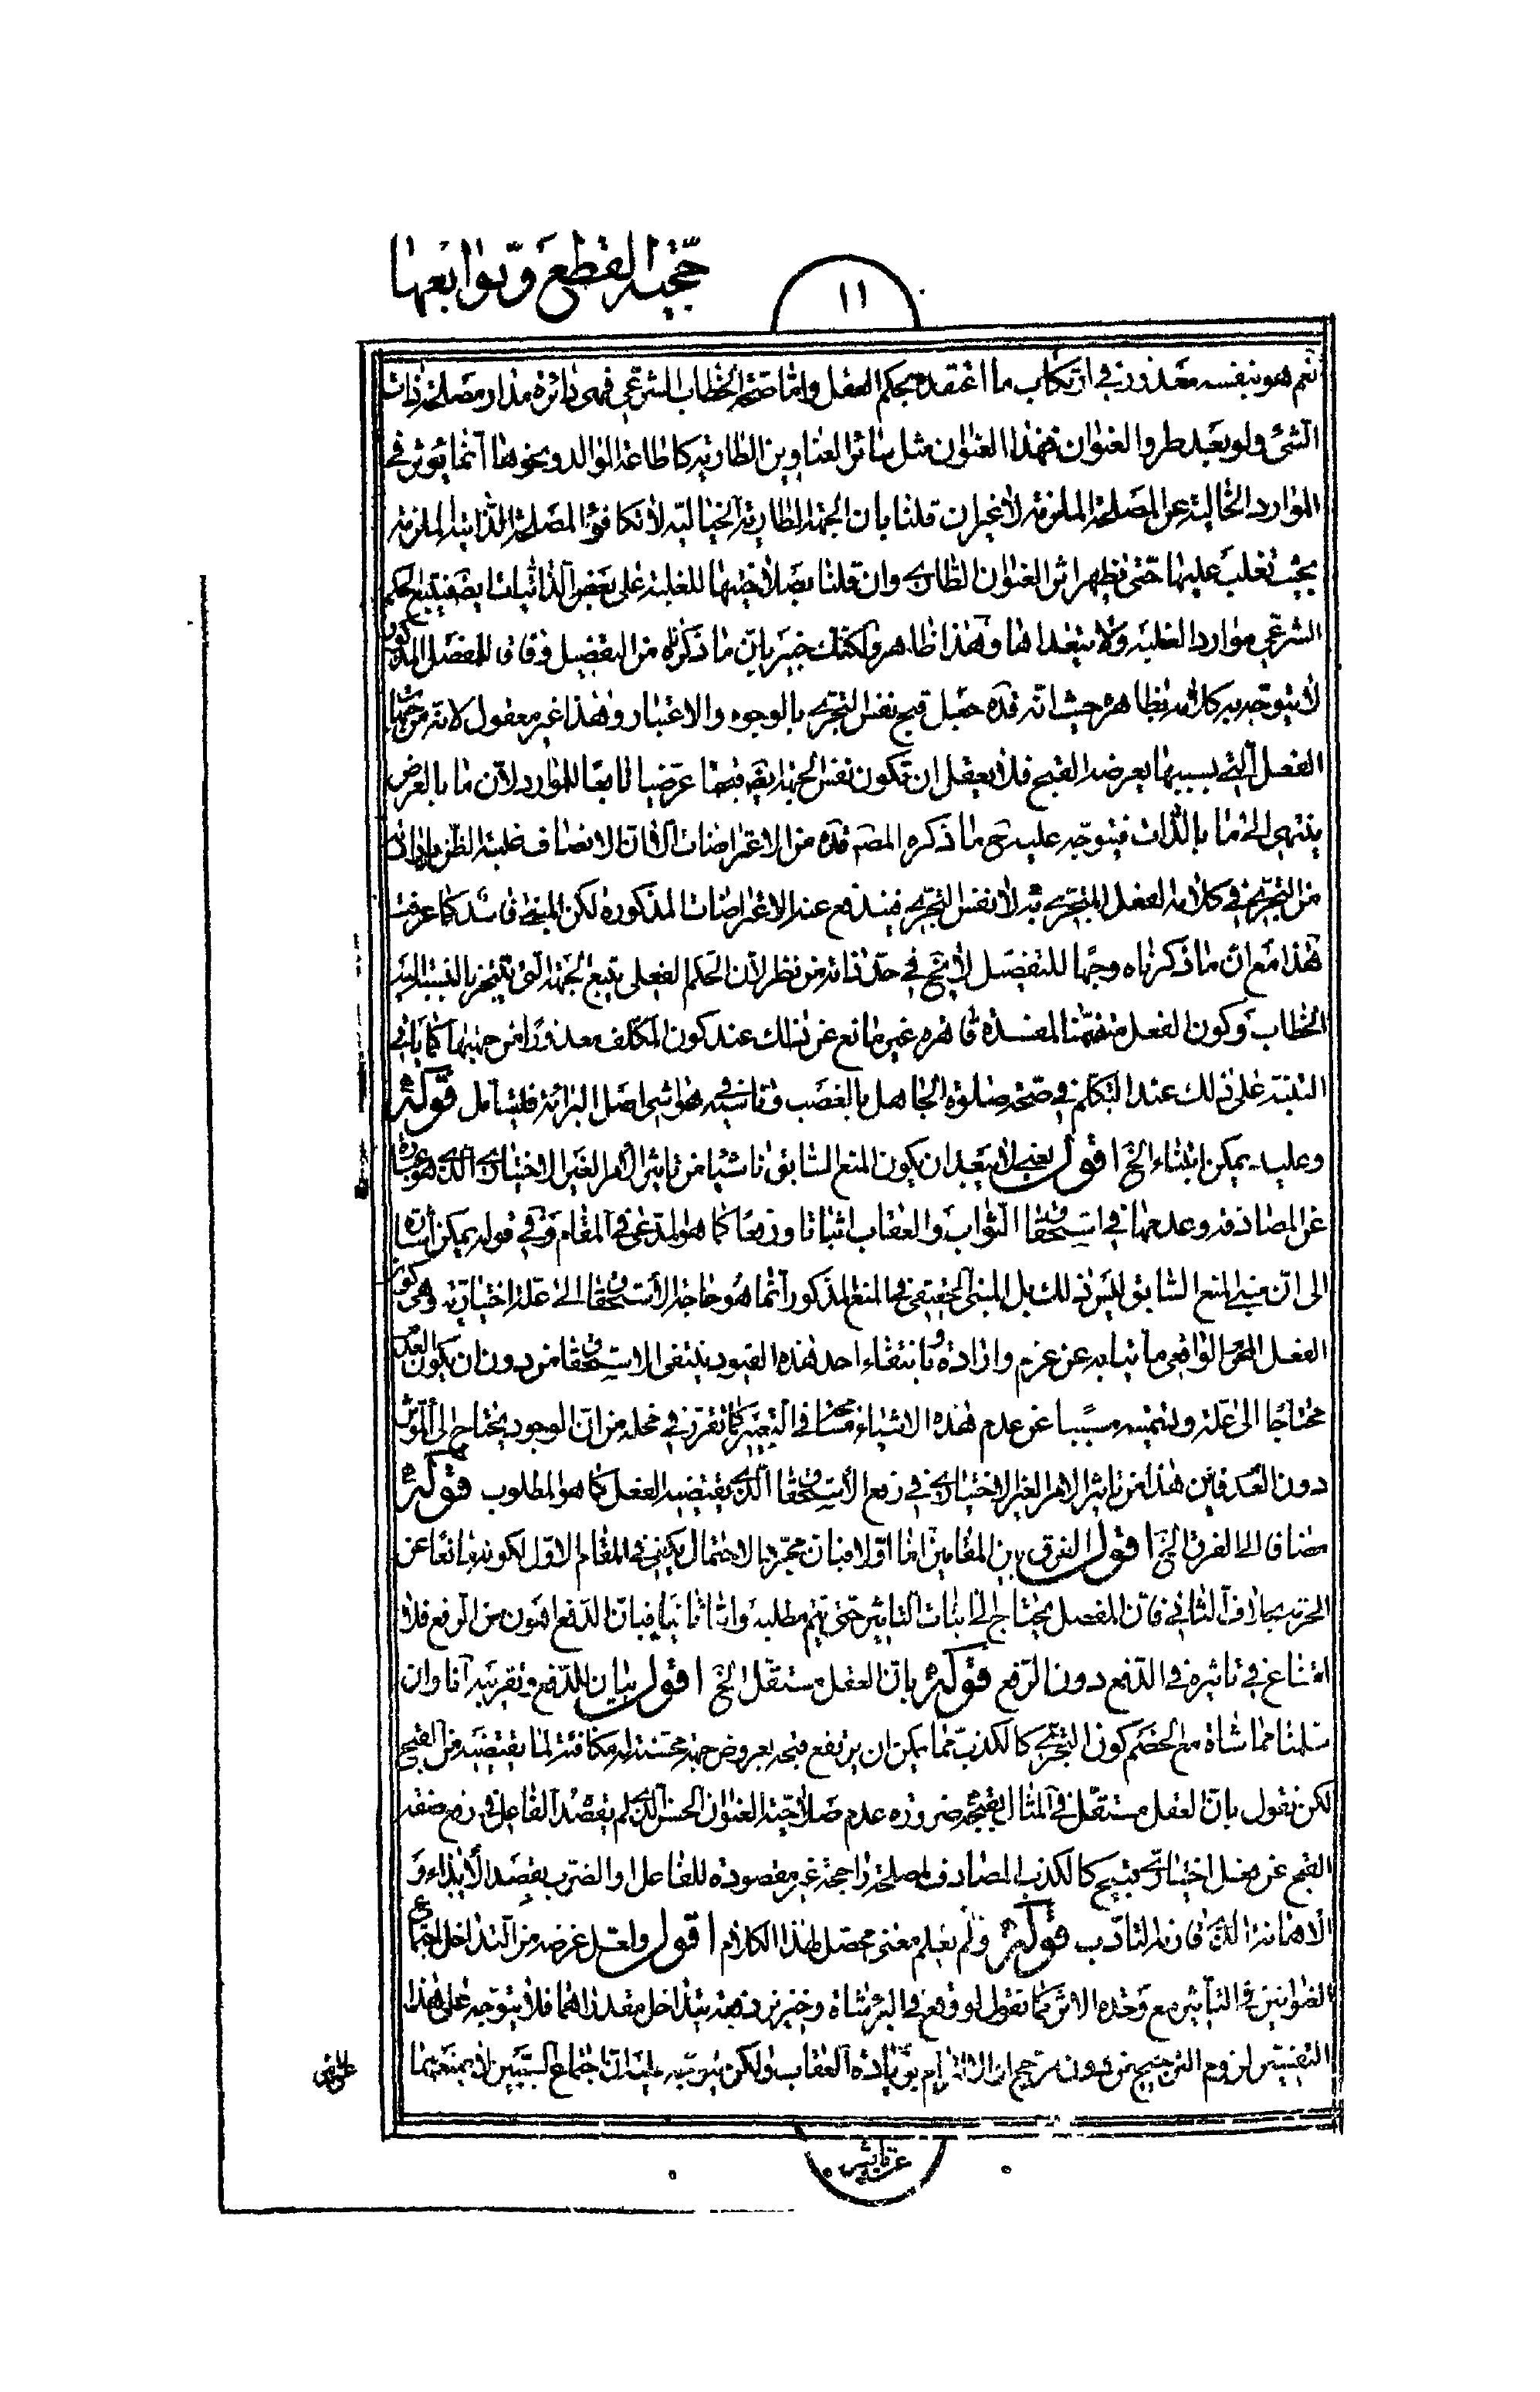 حجّية القطع وتوابعها
١١
نعم هو بنفسه معذور في ارتكاب ما اعتقده بحكم العقل وامّا صحّة الخطاب الشرعي فهي دائرة مدار مصلحة ذات
الشئ ولو بعد طروا العنوان فهذا العنوان مثل سائر العناوين الطارية كاطاعة الوالد ونحوها انّما يؤثر في
الموارد الخالية عن المصلحة الملزمة لا غير ان قلنا بان الجهة الطارية الخيالية لا تكافؤ المصلحة الذاتية الملزمة
بحيث تغلب عليها حتى يظهر اثر العنوان الطاري وان قلنا بصلاحيتها للغلبة على بعض الذاتيات الضعيفة يتبع الحكم
الشرعي موارد الغلبة ولا يتعداها وهذا ظاهر ولكنك خبير بانّ ما ذكرناه من التفصيل وفاقا للمفصّل المذكور
لا يتوجه به كلامه بظاهره حيث انّه قده جعل قبح نفس التجري بالوجوه والاعتبار وهذا غير معقول لانه من جهات
الفعل الّتي بسببها يعرضه القبح فلا يعقل ان تكون نفس الجهة ايضا قبحها عرضيا تابعا للموارد لانّ ما بالعرض
ينتهي الى ما بالذات فيتوجه عليه ح ما ذكره المصّ قده من الاعتراضات الّا انّ الانصاف غلبة الظن بارادته
من التجرّي في كلامه الفعل المتجرى به لا نفس التجري فيندفع عنه الاعتراضات المذكورة لكن المبنى فاسد كما عرفت
هذا مع انّ ما ذكرناه وجها للتفصيل لا يخ في حدّ ذاته من نظر لانّ الحكم الفعلي يتبع الجهة التي يتنجز بالنسبة اليه
الخطاب وكون الفعل متضمّنا لمفسدة قاهرة غير مانع عن ذلك عند كون المكلّف معذورا من جهتها كما يأتي
التنبيه على ذلك عند التكلم في صحّة صلوة الجاهل بالغصب وناسيه في حواشي اصل البرائة فليتأمل قوله ره
وعليه يمكن ابتناء الخ اقول يعني لا يبعد ان يكون المنع السابق ناشئا من تاثير الامر الغير الاختياري الذي هو عبارة
عن المصادفة وعدمها في استحقاق الثواب والعقاب اثباتا ورفعا كما هو المدّعى في المقام وفي قوله يمكن اشارة
الى انّ مبنى المنع السابق ليس ذلك بل المبنى الحقيقي في المنع المذكور انّما هو حاجة الاستحقاق الى علّة اختيارية وهي كون
الفعل المحرّم الواقعي مأتيا به عن عزم وارادة وبانتفاء احد هذه القيود ينتفي الاستحقاق من دون ان يكون العدم
محتاجا الى علّة وتسميته مسبّبا عن عدم هذه الاشياء مسامحة في التعبير كما تقرّر في محله من انّ الوجود يحتاج الى المؤثر
دون العدم فاين هذا من تاثير الامر الغير الاختياري في رفع الاستحقاق الّذي يقتضيه الفعل كما هو المطلوب قوله ره
مضافا الى الفرق الخ اقول الفرق بين المقامين امّا اوّلا فبان مجرّد الاحتمال يكفي في المقام الاوّل لكونه مانعا عن
الجزم بخلاف الثاني فانّ المفصل يحتاج الى اثبات التاثير حتى يتم مطلبه وامّا ثانيا فبانّ الدفع اهون من الرفع فلا
امتناع في تاثيره في الدّفع دون الرّفع قوله ره بانّ العقل مستقل الخ اقول بيان للدّفع وتقريبه انّا وان
سلمنا مماشاة مع الخصم كون التجري كالكذب ممّا يمكن ان يرتفع قبحه بعروض جهة محسّنة له مكافئة لما يقتضيه من القبح
لكن نقول بانّ العقل مستقلّ في المثال بقبحه ضرورة عدم صلاحية العنوان الحسن الّذي لم يقصده الفاعل في رفع صفة
القبح عن فعل اختياري قبيح كالكذب المصادف لمصلحة راجحة غير مقصودة للفاعل او الضرب بقصد الايذاء و
الاهانة الذي قارنه التادّب قوله ره ولم يعلم معنى محصّل لهذا الكلام اقول ولعلّ غرضه من التداخل اجتماع
العنوانين في التأثير مع وحدة الاثر كما نقول لو وقع في البئر شاة وخنزير دفعة يتداخل مقدراهما فلا يتوجه على هذا
التفسير لزوم الترجيح من دون مرجح او الالتزام بزيادة العقاب ولكن يتوجه عليه انّ اجتماع السّببين لا يمنعهما
عن تاثير